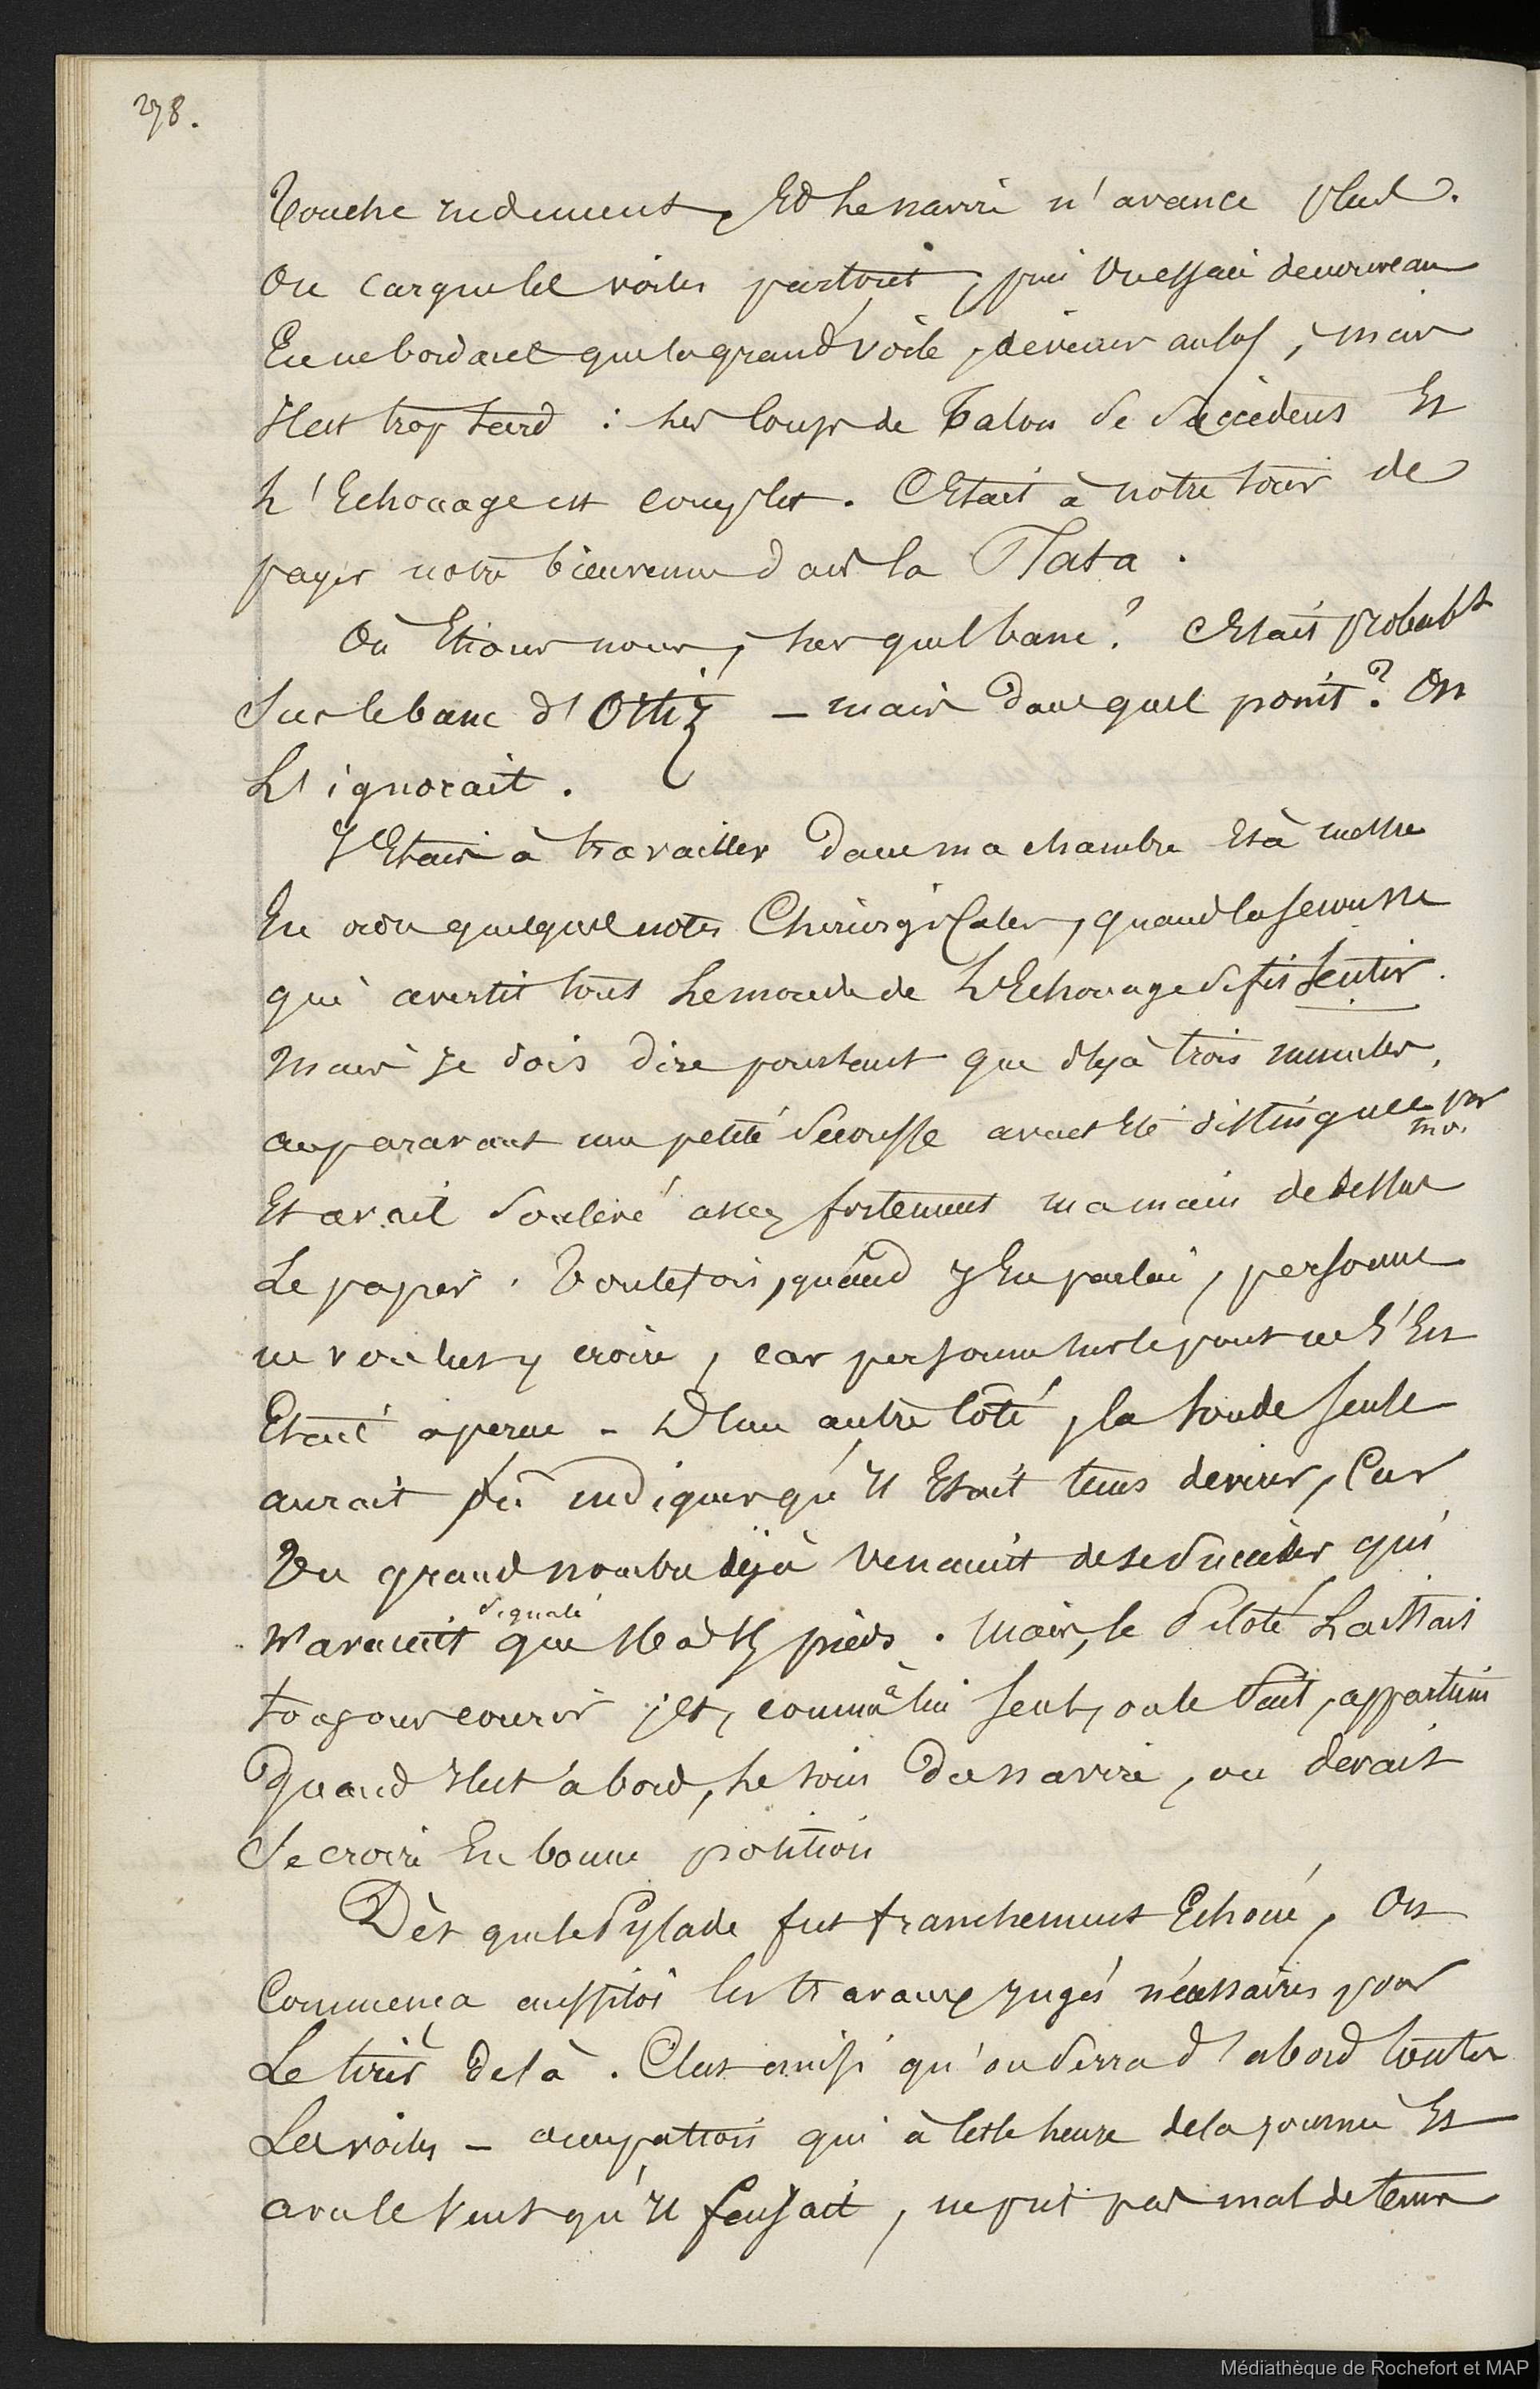 278.
Touche rudement, et le navire n'avance plus.
On cargue les voiles partout, puis on essaie de nouveau
En ne bordant que la grand voile, de venir au lof, mais
Il est trop tard : les coups de talon se succèdent Et
L'Echouage est complet. C'Etait à notre tour de
payer notre bienvenue dans la Plata.
Où Etions nous, sur quel banc ? C'Etait probabt
Sur le banc d'Ortiz – mais dans quel point ? On
L'ignorait.
J'Etais à travailler dans ma chambre Et à mettre
En ordre quelques notes Chirurgicales, quand la secousse
qui avertit tout le monde de l'Echouage se fit sentir.
Mais je dois dire pourtant que déjà trois minutes,
auparavant une petite secousse avait Eté distinguée par
moi
Et avait soulevé assez fortement ma main de dessus
Le papier. Toutefois, quand j'En parlai, personne
ne voulut y croire, car personne sur le pont ne s'En
Etait aperçu – D'un autre côté, la sonde seule
aurait pû indiquer qu'il Etait tems de virer, Car
Un grand nombre déjà venaient de se succéder qui
signalé
N'avaient que 16 à 15 pieds. Mais, le Pilote Laissait
toujours courir ; Et, comme à lui seul, on le sait, appartient
Quand il est à bord, le soin du navire, on devait
Se croire En bonne position
Dès que le Pylade fut franchement Echoué, On
Commença aussitôt les travaux jugés nécessaires pour
Le tirer de là. C'est ainsi qu'on serra d'abord toutes
Les voiles – occupation qui à cette heure de la journée Et
avec le vent qu'il faisait, ne fut pas mal de tems
Médiathèque de Rochefort et MAP